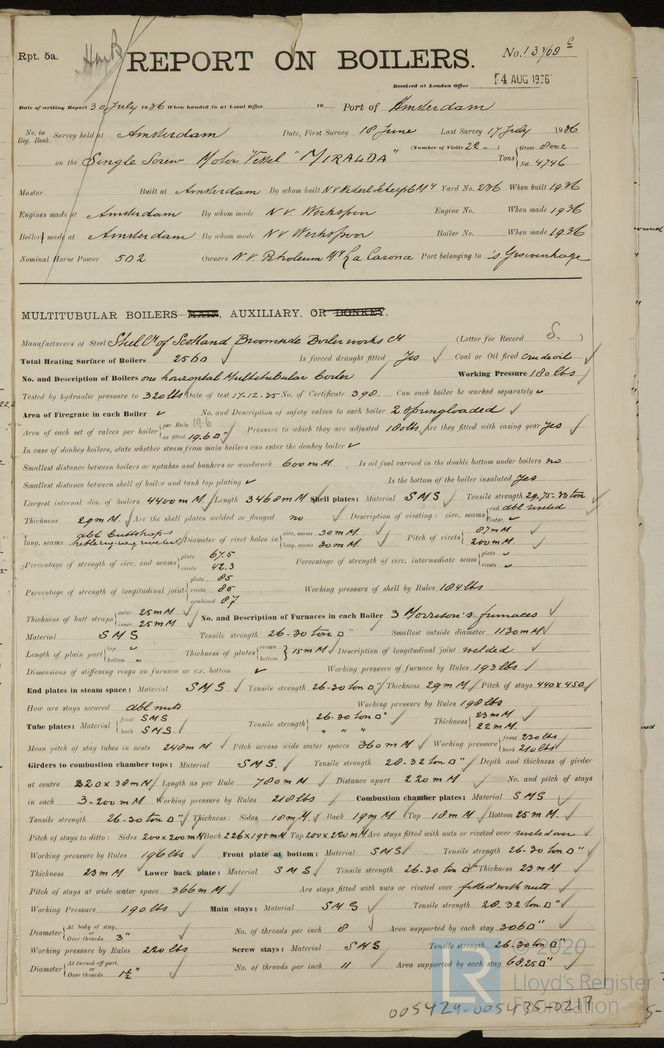 Rpt. 5a.
REPORT ON BOILERS.
No. 13768 c
Received at London Office 4 AUG 1936
Date of writing Report 30 July 1936 When handed in at Local Office 19 Port of Amsterdam
No. in Reg. Book. Survey held at Amsterdam Date, First Survey 18 June Last Survey 17 July 1936
(Number of Visits 22
on the Single Screw Motor Vessel "MIRALDA" Tons { Gross 8002 Net 4746
Master Built at Amsterdam By whom built Yard No. 236 When built 1936
Engines made at Amsterdam By whom made N.V. Werkspoor Engine No. When made 1936
Boilers made at Amsterdam By whom made N.V. Werkspoor Boiler No. When made 1936
Nominal Horse Power 502 Owners N.V. Petroleum My La Corona Port belonging to 's Gravenhage
MULTITUBULAR BOILERS MAIN, AUXILIARY, OR DONKEY.
Manufacturers of Steel Steel Co of Scotland Broomside Boilerworks (Letter for Record S.)
Total Heating Surface of Boilers 2560 Is forced draught fitted Yes Coal or Oil fired crude oil
No. and Description of Boilers one horizontal Multitubular boiler Working Pressure 180 lbs
Tested by hydraulic pressure to 320 lbs Date of test 17-12-35 No. of Certificate 398. Can each boiler be worked separately
Area of Firegrate in each Boiler No. and Description of safety valves to each boiler 2 springloaded
Area of each set of valves per boiler { per Rule 19.6 as fitted 19.6 □" Pressure to which they are adjusted 180 lbs Are they fitted with easing gear Yes
In case of donkey boilers, state whether steam from main boilers can enter the donkey boiler
Smallest distance between boilers or uptakes and bunkers or woodwork 600 mM Is oil fuel carried in the double bottom under boilers no
Smallest distance between shell of boiler and tank top plating Is the bottom of the boiler insulated Yes
Largest internal dia. of boilers 4400 mM. Length 3468 mM Shell plates: Material SMS Tensile strength 29.75-33 ton
Thickness 29 mM. Are the shell plates welded or flanged no Description of riveting: circ. seams { end dbl riveted inter.
long. seams dbl buttstraps Diameter of rivet holes in { circ. seams 30 mM long. seams 30 mM Pitch of rivets { 87 mM 200 mM.
Percentage of strength of circ. end seams { plate 67.5 rivets 42.3 Percentage of strength of circ. intermediate seam { plate rivets
Percentage of strength of longitudinal joint { plate 85 rivets 86 combined 87 Working pressure of shell by Rules 184 lbs
Thickness of butt straps { outer 25 mM inner 25 mM No. and Description of Furnaces in each Boiler 3 Morrison's furnaces
Material SMS Tensile strength 26-30 ton □" Smallest outside diameter 1130 mM
Length of plain part { top bottom Thickness of plates { crown bottom } 15 mM Description of longitudinal joint welded
Dimensions of stiffening rings on furnace or c.c. bottom Working pressure of furnace by Rules 193 lbs
End plates in steam space: Material SMS. Tensile strength 26-30 ton □" Thickness 29 mM Pitch of stays 440 x 450
How are stays secured dbl nuts Working pressure by Rules 198 lbs
Tube plates: Material { front SMS back SMS. Tensile strength { 26-30 ton □" " " " Thickness { 23 mM 22 mM.
Mean pitch of stay tubes in nests 248 mM Pitch across wide water spaces 360 mM Working pressure { front 230 lbs back 210 lbs
Girders to combustion chamber tops: Material SMS. Tensile strength 28-32 ton □" Depth and thickness of girder
at centre 220 x 38 mM Length as per Rule 780 mM Distance apart 220 mM No. and pitch of stays
in each 3-200 mM Working pressure by Rules 218 lbs Combustion chamber plates: Material SMS
Tensile strength 26-30 ton □" Thickness: Sides 18 mM. Back 19 mM Top 18 mM Bottom 25 mM.
Pitch of stays to ditto: Sides 200 x 200 mM Back 226 x 195 mM Top 200 x 220 mM Are stays fitted with nuts or riveted over riveted over
Working pressure by Rules 196 lbs Front plate at bottom: Material SMS Tensile strength 26-30 ton □"
Thickness 23 mM Lower back plate: Material SMS Tensile strength 26-30 ton □" Thickness 23 mM
Pitch of stays at wide water space 366 mM Are stays fitted with nuts or riveted over fitted with nuts
Working Pressure 190 lbs Main stays: Material SMS Tensile strength 28-32 ton □"
Diameter { At body of stay, or Over threads 3" No. of threads per inch 8 Area supported by each stay 306 □"
Working pressure by Rules 220 lbs Screw stays: Material SMS Tensile strength 26-30 ton □"
Diameter { At turned off part, or Over threads 1½" No. of threads per inch 11 Area supported by each stay 68.25 □"
© 2020
Lloyd's Register
Foundation
005429-005435-0217